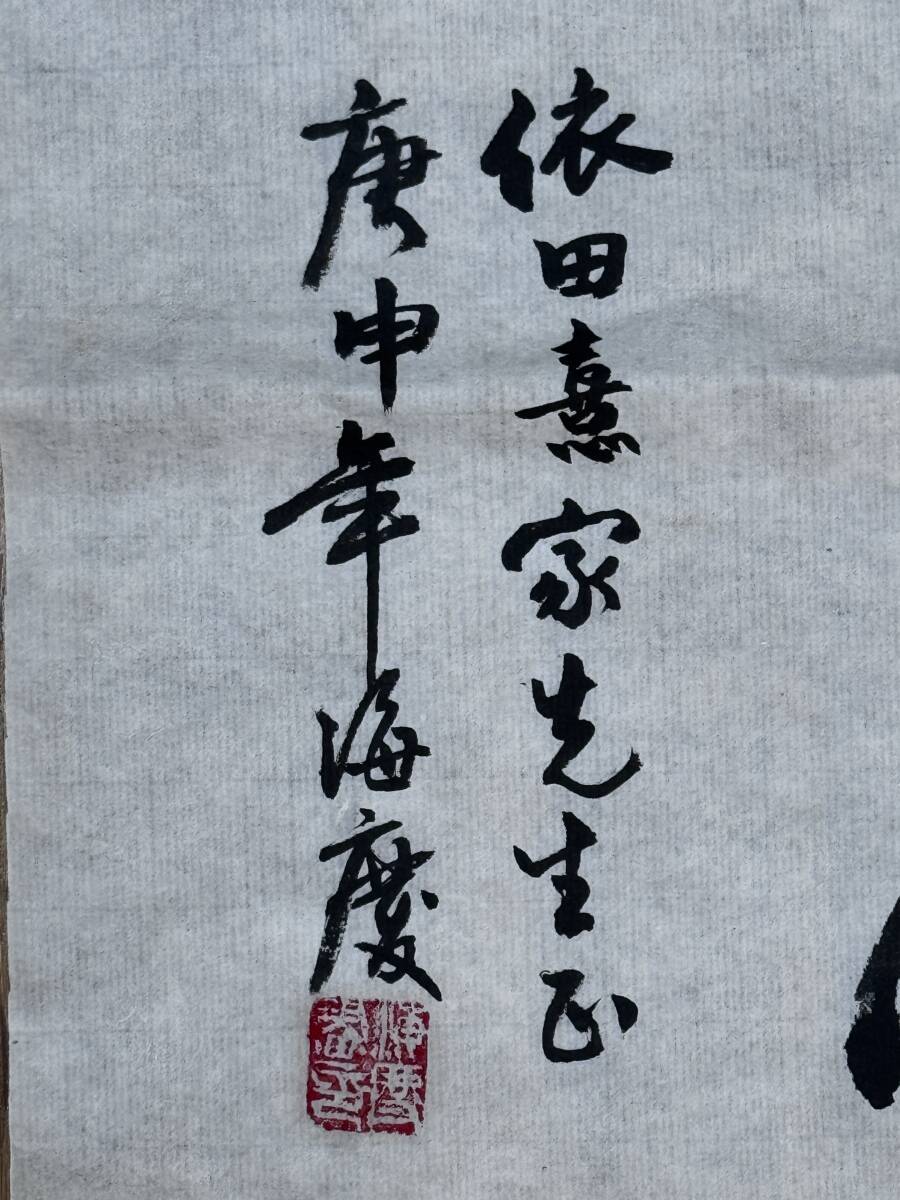 依田憙家先生正
庚申年海慶